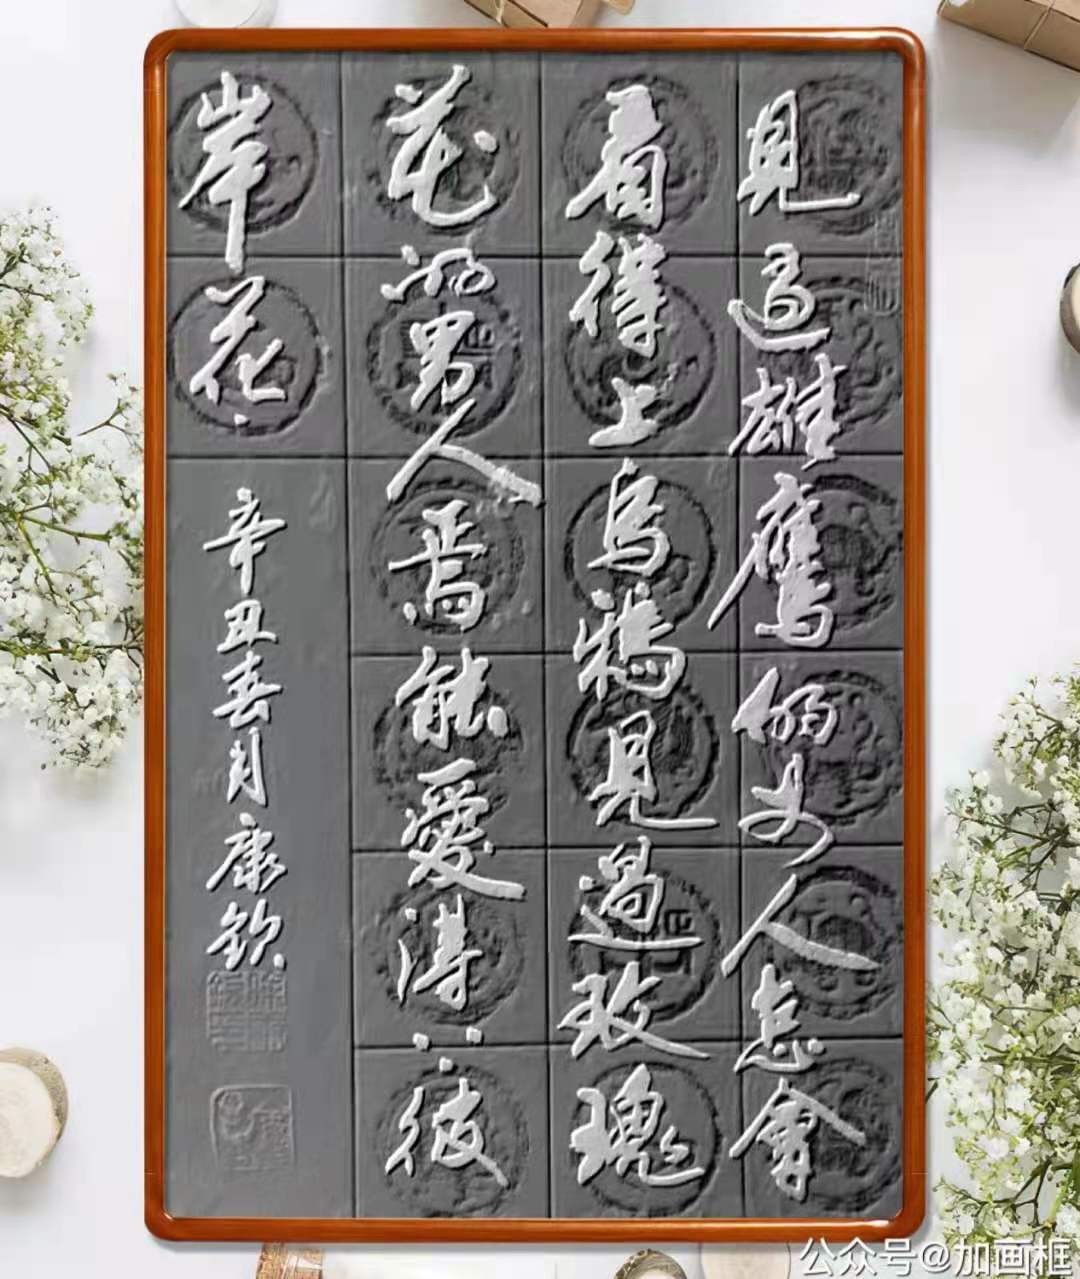 見過雄鷹的女人怎會
看得上烏鴉見過玫瑰
花的男人焉能愛得上彼
岸花
辛丑春月康欽
公众号@加画框